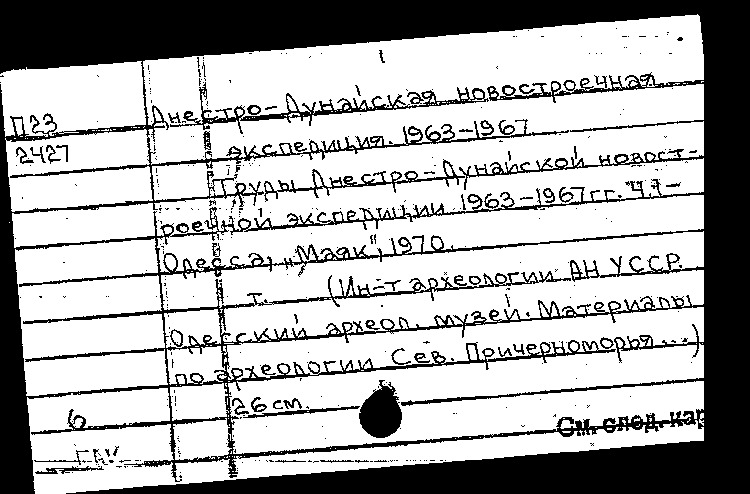 П23 Днестро-Дунайская новостроечная
2427 экспедиция. 1963-1967
Труды Днестро-Дунайской новост-
роечной экспедиции 1963-1967гг. Ч.1-
Одесса, „Маяк", 1970.
т. (Ин-т археологии АН УССР.
Одесский археол. музей. Материалы
по археологии Сев. Причерноморья...)
26 см.
6
См. след. кар